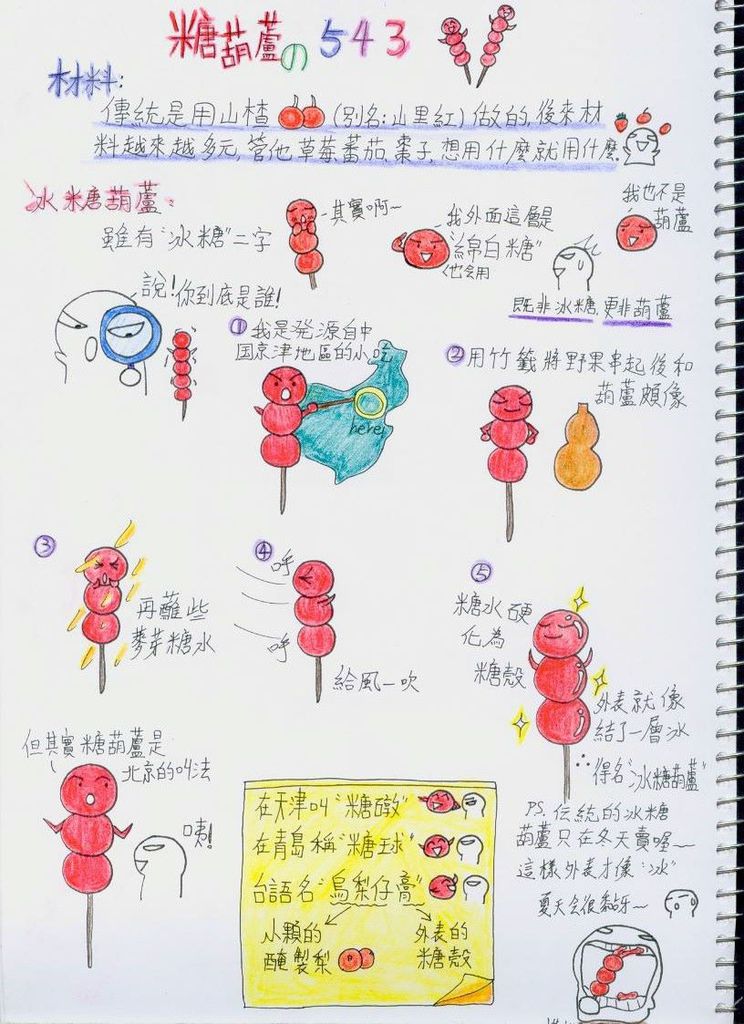 糖葫蘆の543
材料:
傳統是用山楂 (別名:山里紅)做的,後來材
料越來越多元,管他草莓,蕃茄,棗子,想用什麼就用什麼.
冰糖葫蘆:
雖有"冰糖"二字
其實啊~
我外面這層是
"綿白糖"
(也會用
我也不是
葫蘆
既非冰糖,更非葫蘆
說!你到底是誰!
①我是発源自中
国京津地區的小吃
here
②用竹籤將野果串起後和
葫蘆頗像
③
再蘸些
麥芽糖水
④
呼
呼
給風一吹
⑤
糖水硬
化為
糖殼
外表就像
結了一層冰
∴得名"冰糖葫蘆"
但其實糖葫蘆是
北京的叫法
咦!
在天津叫"糖礅"
在青島稱"糖球"
台語名"鳥梨仔膏"
小顆的
醃製梨
外表的
糖殼
PS.伝統的冰糖
葫蘆只在冬天賣喔~
這樣外表才像"冰"
夏天会很黏牙~